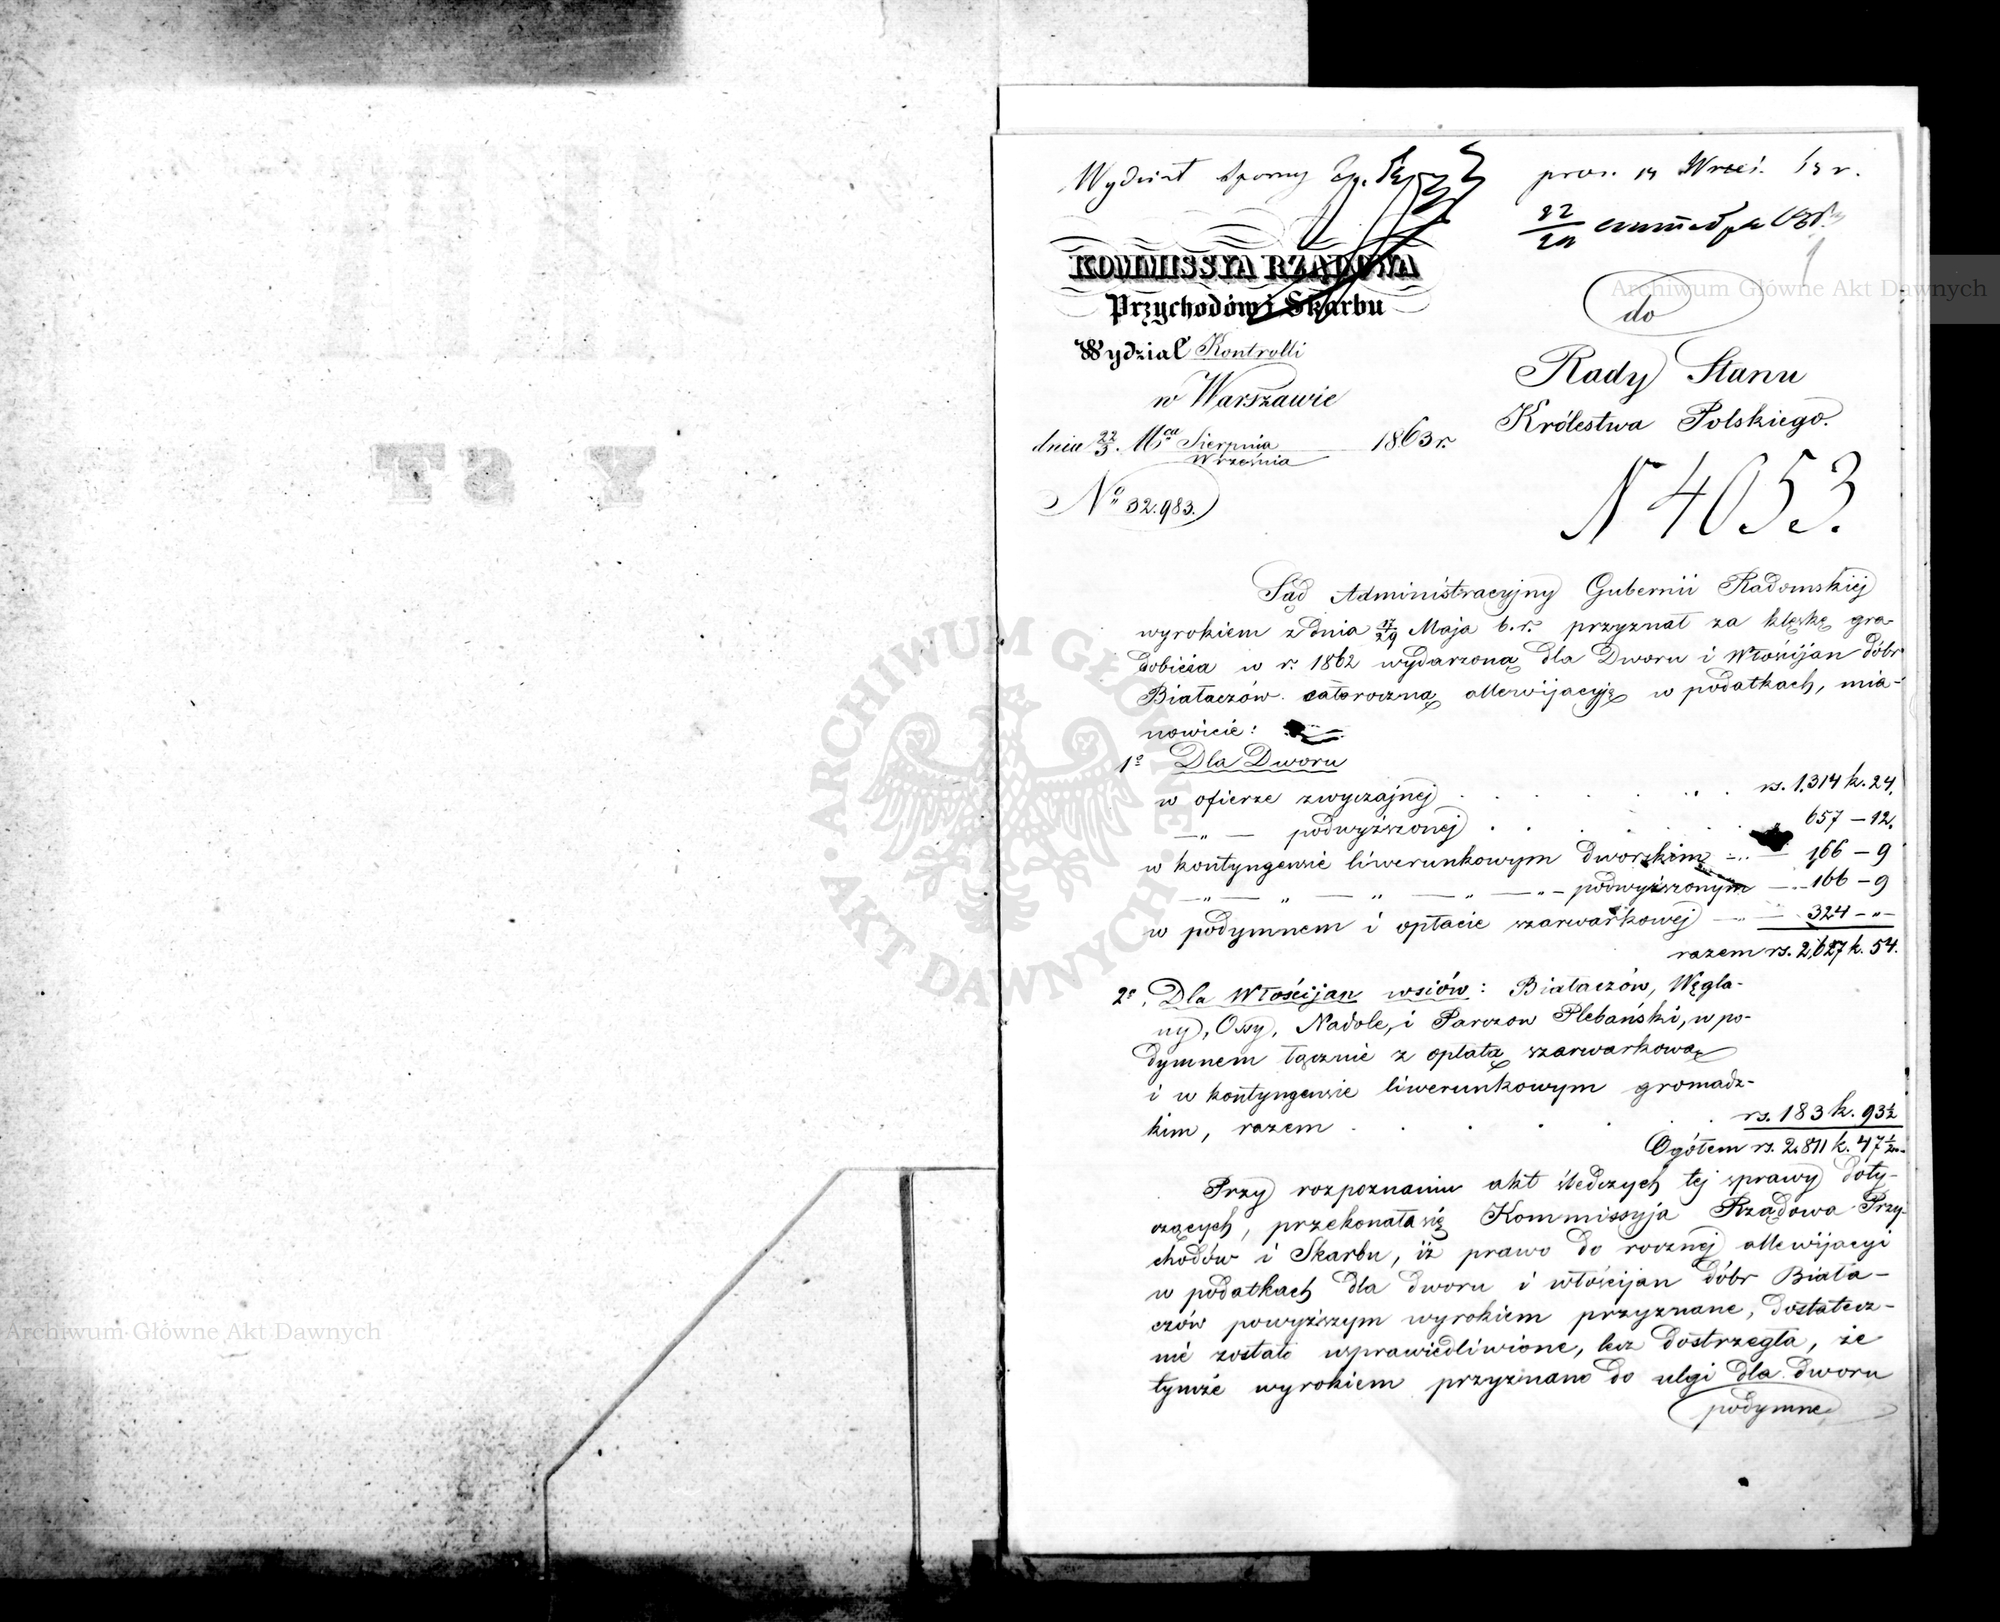 Wydział Sporny
pros. 14 Wrześ. 63 r.
KOMMISSYA RZĄDOWA
Przychodów i Skarbu
Wydział Kontrolli
w Warszawie
dnia 22/3. Mca Sierpnia/Września 1863 r.
No 32.983.
do
Rady Stanu
Królestwa Polskiego.
N 4053.
Sąd Administracyjny Gubernii Radomskiej
wyrokiem z dnia 17/29 Maja b. r. przyznał za klęskę gra-
dobicia w r. 1862 wydarzoną dla Dworu i Włościjan dóbr
Białaczów całoroczną allewijacyję w podatkach, mia-
nowicie:
1o Dla Dworu
w ofierze zwyczajnej . . . . . rs. 1,314 k. 24.
—„— podwyższonej . . . . . „ 657 — 12.
w kontyngensie liwerunkowym dworskim —„— 166 — 9
—„— „ — „ — „ — podwyższonym —„— 166 — 9
w podymnem i opłacie szarwarkowej —„— 324 —„—
razem rs. 2,627 k. 54.
2o. Dla Włościjan wsiów: Białaczów, Węgla-
ny, Ossy, Nadole, i Parczow Plebański, w po-
dymnem łącznie z opłatą szarwarkową
i w kontyngensie liwerunkowym gromadz-
kim, razem . . . . . rs. 183 k. 93½
Ogółem rs. 2,811 k. 47½
Przy rozpoznaniu akt śledczych tej sprawy doty-
czących, przekonała się Kommissyja Rządowa Przy-
chodów i Skarbu, iż prawo do rocznej allewijacyi
w podatkach dla dworu i włościjan dóbr Biała-
czów powyższym wyrokiem przyznane, dostatecz-
nie zostało usprawiedliwione, lecz dostrzegła, że
tymże wyrokiem przyznano do ulgi dla dworu
podymne
Archiwum Główne Akt Dawnych
Archiwum Główne Akt Dawnych
ARCHIWUM GŁÓWNE AKT DAWNYCH